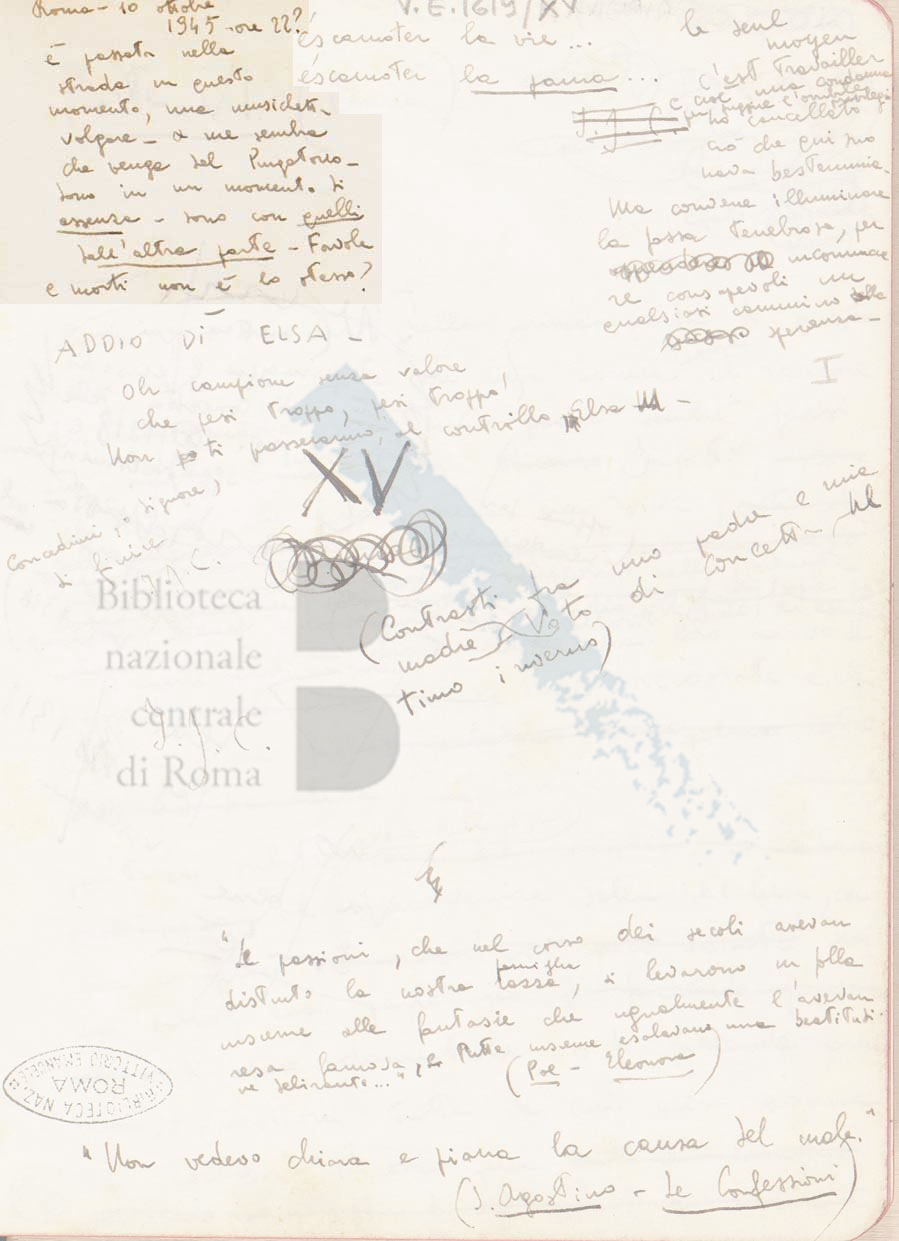 Roma - 10 ottobre
1945 - ore 22?
È passata nella
strada in questo
momento, una musichetta
volgare - a me sembra
che venga dal Purgatorio -
sono in un momento di
assenza - sono con quelli
dall'altra parte - Favole
e morti non è lo stesso?
V.E.1619/XV
éscamoter la vie... le seul
moyen
éscamoter la fama... c'est travailler
e cioè una condanna
per fuggire l'orribile
ho cancellato
ciò che qui suo
nava bestemmia.
Ma conviene illuminare
la fossa tenebrosa, per
incomincia
re consapevoli un
qualsiasi cammino alla
speranza -
I
ADDIO DI ELSA -
Oh campione senza valore
che pesi troppo, pesi troppo!
Non ti passeranno, al controllo, Elsa -
XV
Concedimi, o Signore,
di finire
J.J.C.
(Contrasti fra suo padre e mia
madre Voto di Concetta
timo inverno)
Biblioteca
nazionale
centrale
di Roma
J.J.C.
"Le passioni, che nel corso dei secoli avevan
distinto la nostra razza, famiglia si levarono in folla
insieme alle fantasie che ugualmente l'avevan
resa famosa, e tutte insieme esalavano una beatitudi-
ne delirante..."
(Poe - Eleonora)
BIBLIOTECA NAZ.
ROMA
VITTORIO EMANUELE
"Non vedevo chiara e piana la causa del male."
(S. Agostino - Le Confessioni)